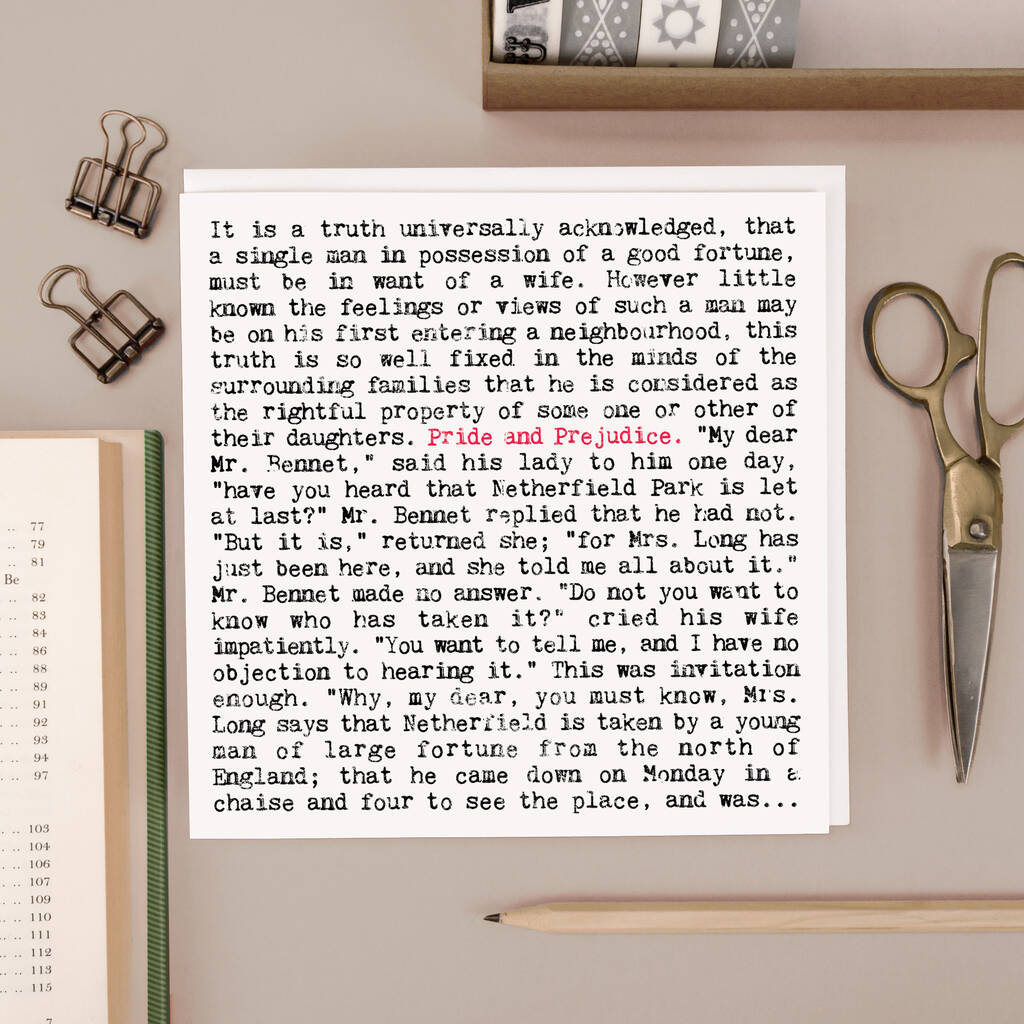 It is a truth universally acknowledged, that
a single man in possession of a good fortune,
must be in want of a wife. However little
known the feelings or views of such a man may
be on his first entering a neighbourhood, this
truth is so well fixed in the minds of the
surrounding families that he is considered as
the rightful property of some one or other of
their daughters. Pride and Prejudice. "My dear
Mr. Bennet," said his lady to him one day,
"have you heard that Netherfield Park is let
at last?" Mr. Bennet replied that he had not.
"But it is," returned she; "for Mrs. Long has
just been here, and she told me all about it."
Mr. Bennet made no answer. "Do not you want to
know who has taken it?" cried his wife
impatiently. "You want to tell me, and I have no
objection to hearing it." This was invitation
enough. "Why, my dear, you must know, Mrs.
Long says that Netherfield is taken by a young
man of large fortune from the north of
England; that he came down on Monday in a
chaise and four to see the place, and was...
.. 77
.. 79
.. 81
Be
.. 82
.. 83
.. 84
.. 86
.. 88
.. 89
.. 91
.. 92
.. 93
.. 94
.. 97
.. 103
.. 104
.. 106
.. 107
.. 109
.. 110
.. 111
.. 112
.. 113
.. 115